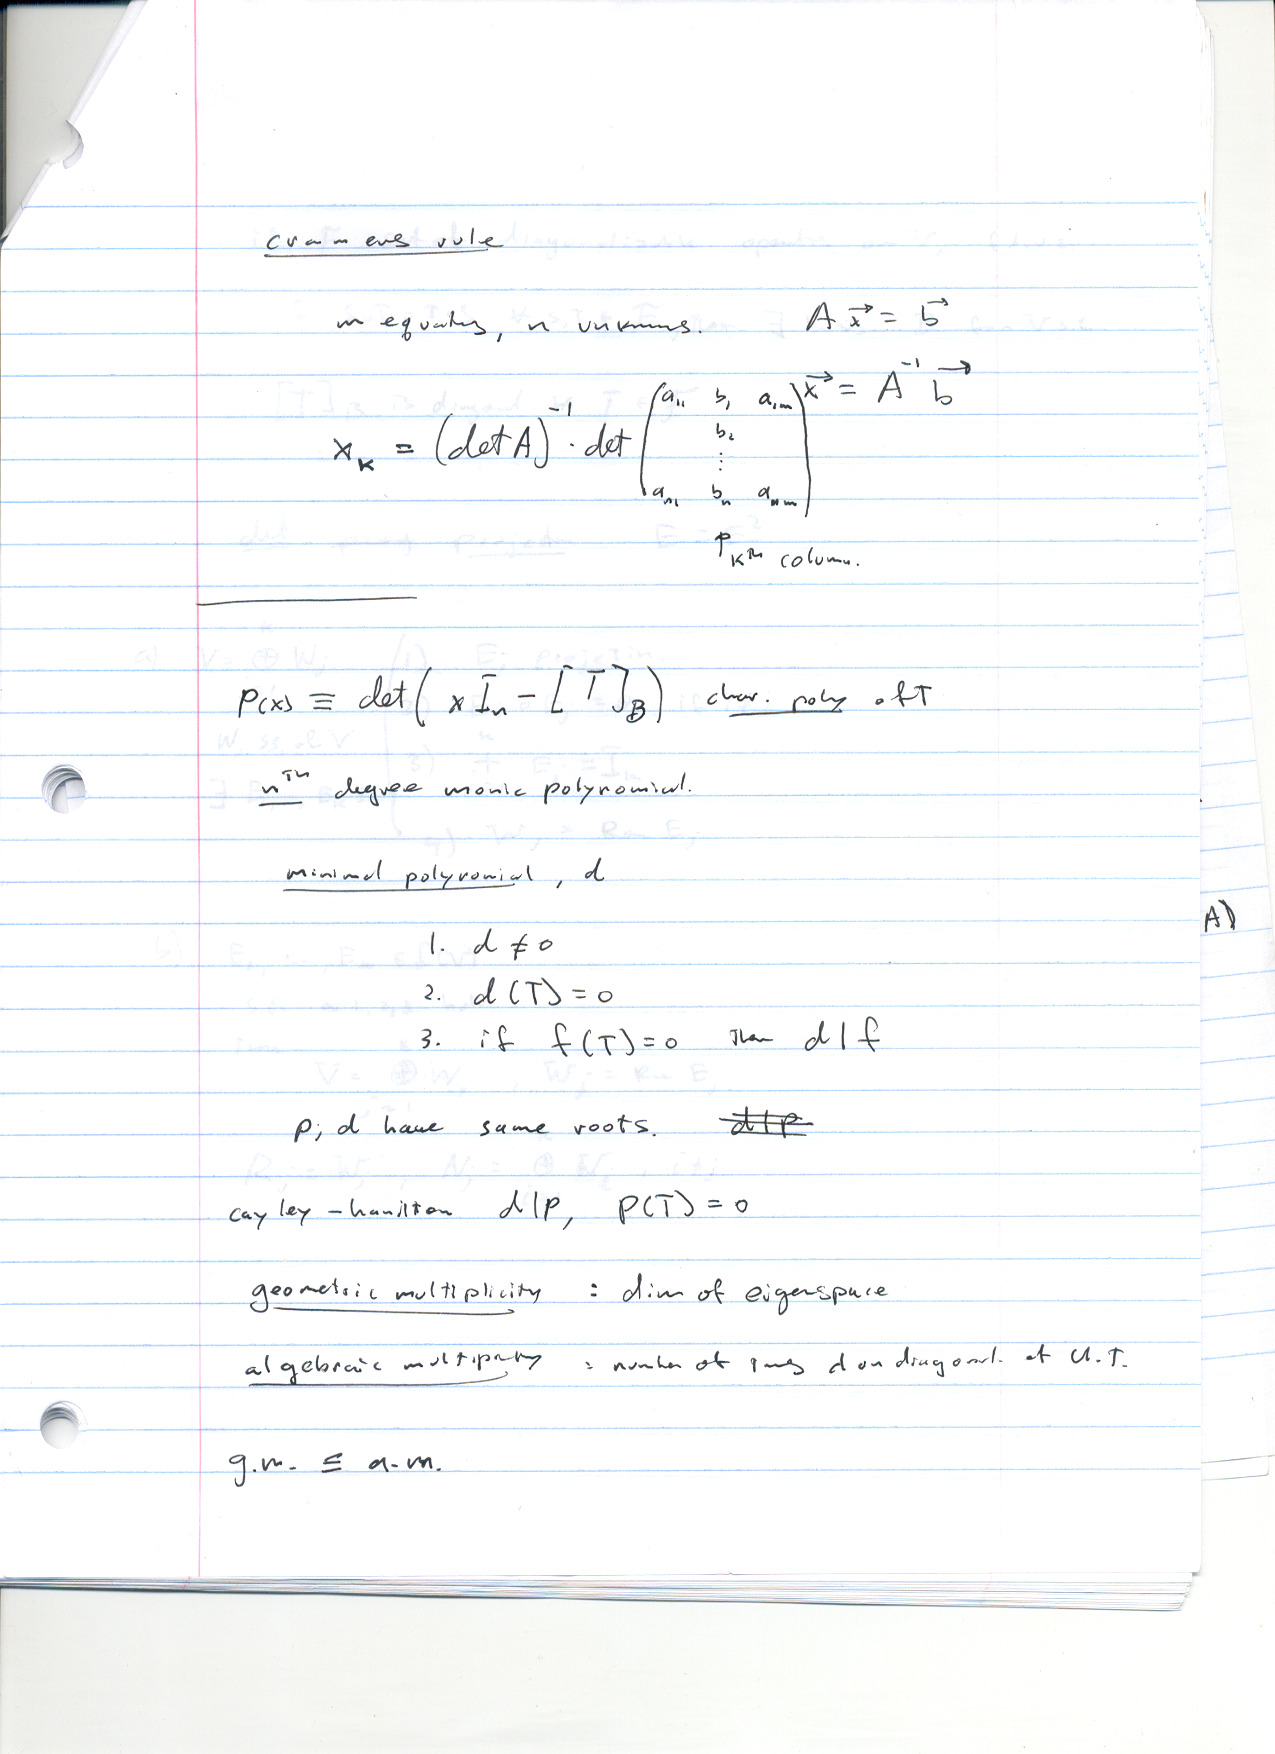 cramers rule
m equatns, n unknwns. A x⃗ = b⃗
x⃗ = A⁻¹ b⃗
x_k = (det A)⁻¹ · det ( a₁₁ b₁ a₁m
b₂
⋮
a_n1 b_n a_nm )
↑ kth column.
p(x) ≡ det( x I_n - [T]_B ) char. poly of T
nth degree monic polynomial.
minimal polynomial, d
1. d ≠ 0
2. d(T) = 0
3. if f(T) = 0 then d | f
A)
p; d have same roots. d | p
cayley-hamilton d | p, p(T) = 0
geometric multiplicity : dim of eigenspace
algebraic multiplicity : number of times d on diagonal of U.T.
g.m. ≤ a.m.